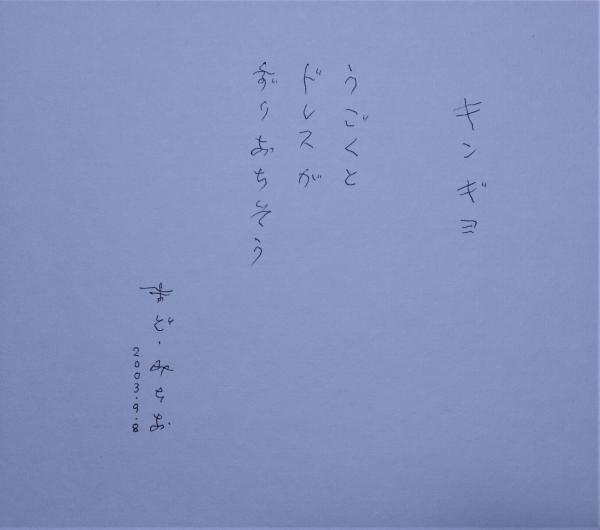 キンギョ
うごくと
ドレスが
ずりおちそう
まど・みちお
2003.9.8